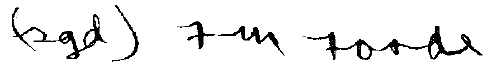 (sgd) F M Forde